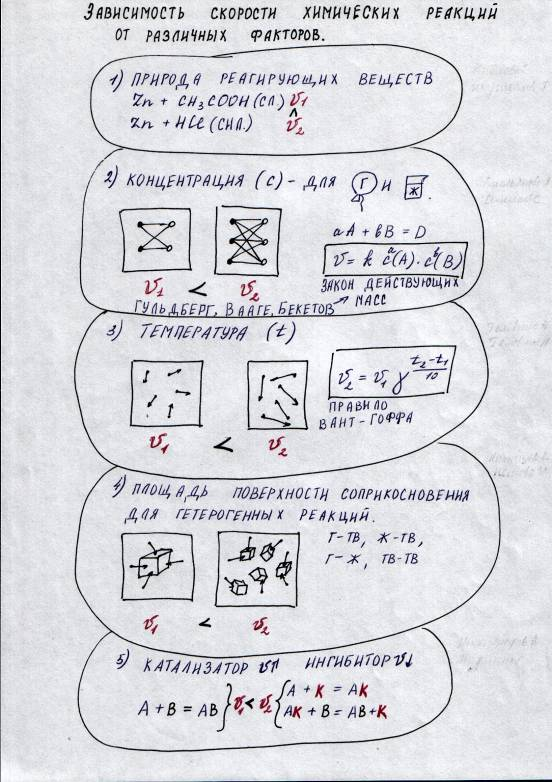 ЗАВИСИМОСТЬ СКОРОСТИ ХИМИЧЕСКИХ РЕАКЦИЙ
ОТ РАЗЛИЧНЫХ ФАКТОРОВ.
1) ПРИРОДА РЕАГИРУЮЩИХ ВЕЩЕСТВ
Zn + CH₃COOH (СЛ.) υ₁
^
Zn + HCl (СИЛ.) υ₂
2) КОНЦЕНТРАЦИЯ (С) - ДЛЯ Г И Ж.
aA + bB = D
υ = k cᵃ(A) · cᵇ(B)
υ₁ < υ₂
ЗАКОН ДЕЙСТВУЮЩИХ
МАСС
ГУЛЬДБЕРГ, ВААГЕ, БЕКЕТОВ
3) ТЕМПЕРАТУРА (t)
υ₂ = υ₁ γ^((t₂-t₁)/10)
ПРАВИЛО
ВАНТ-ГОФФА
υ₁ < υ₂
4) ПЛОЩАДЬ ПОВЕРХНОСТИ СОПРИКОСНОВЕНИЯ
ДЛЯ ГЕТЕРОГЕННЫХ РЕАКЦИЙ.
Г-ТВ, Ж-ТВ,
Г-Ж, ТВ-ТВ
υ₁ < υ₂
5) КАТАЛИЗАТОР υ↑ ИНГИБИТОР υ↓
A + B = AB } υ₁ < υ₂ { A + K = AK
AK + B = AB + K